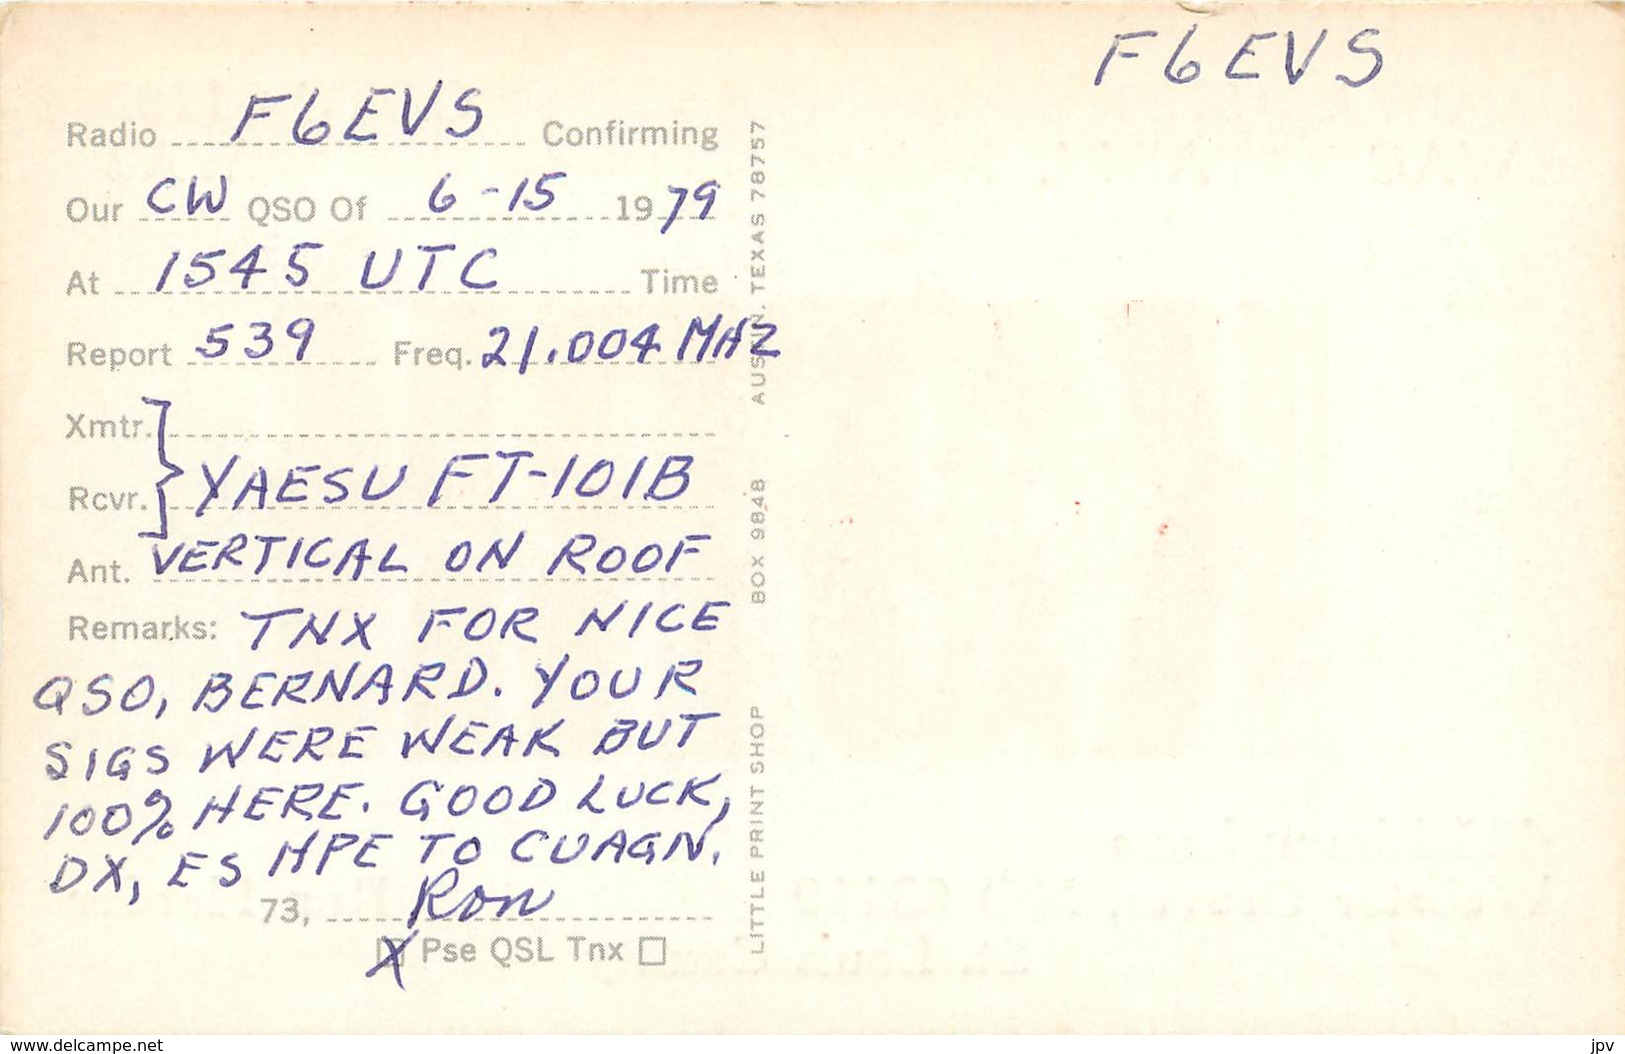 F6EVS
Radio F6EVS Confirming
Our CW QSO Of 6-15 1979
At 1545 UTC Time
Report 539 Freq. 21.004 MHZ
Xmtr.
Rcvr. } YAESU FT-101B
Ant. VERTICAL ON ROOF
Remarks: TNX FOR NICE
QSO, BERNARD. YOUR
SIGS WERE WEAK BUT
100% HERE. GOOD LUCK,
DX, ES HPE TO CUAGN.
73, Ron
X Pse QSL Tnx
LITTLE PRINT SHOP BOX 9848 AUSTIN, TEXAS 78757
www.delcampe.net
jpv